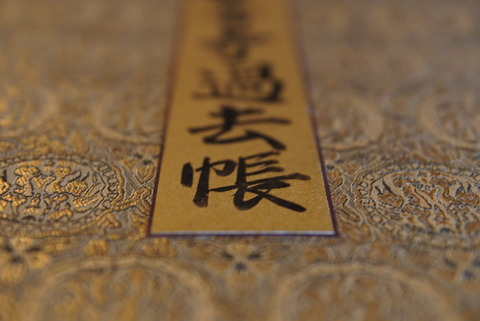 過去帳